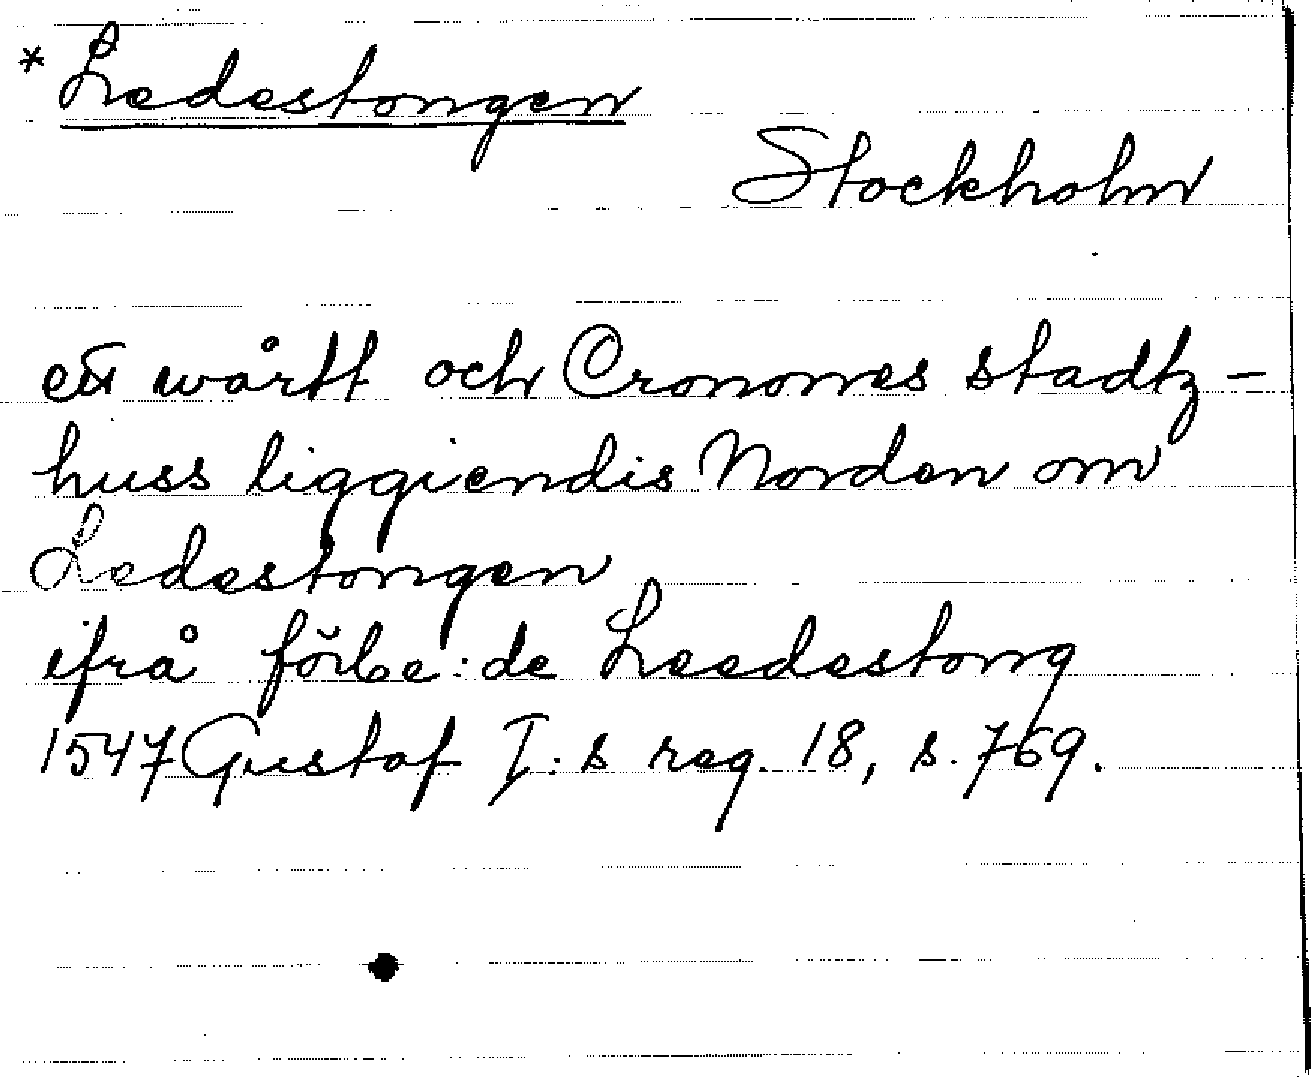 * Ledestongen
Stockholm
ett wårtt och Cronones stadtz-
huss liggiendis Norden om
Ledestongen
ifrå förbe:de Leedestong
1547 Gustaf I:s reg. 18, s. 769.